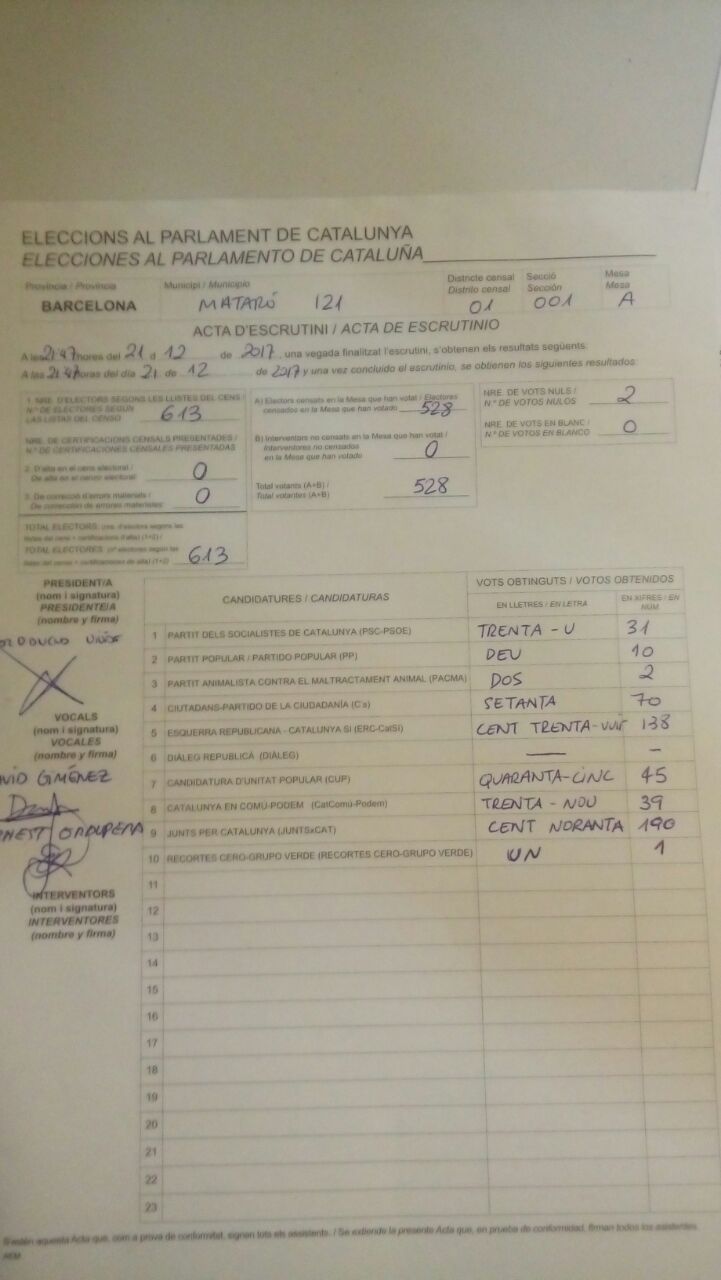 ELECCIONS AL PARLAMENT DE CATALUNYA
ELECCIONES AL PARLAMENTO DE CATALUÑA
Província / Provincia Municipi / Municipio Districte censal Secció Mesa
Distrito censal Sección Mesa
BARCELONA MATARÓ 121 01 001 A
ACTA D'ESCRUTINI / ACTA DE ESCRUTINIO
A les 21:47 hores del 21 d 12 de 2017, una vegada finalitzat l'escrutini, s'obtenen els resultats següents:
A las 21:47 horas del día 21 de 12 de 2017 y una vez concluido el escrutinio, se obtienen los siguientes resultados:
1. NRE. D'ELECTORS SEGONS LES LLISTES DEL CENS /
N.º DE ELECTORES SEGÚN
LAS LISTAS DEL CENSO 613
NRE. DE CERTIFICACIONS CENSALS PRESENTADES /
N.º DE CERTIFICACIONES CENSALES PRESENTADAS
2. D'alta en el cens electoral /
De alta en el censo electoral 0
3. De correcció d'errors materials /
De corrección de errores materiales 0
TOTAL ELECTORS (nre. d'electors segons les
llistes del cens + certificacions d'alta) (1+2) /
TOTAL ELECTORES (nº electores según las
listas del censo + certificaciones de alta) (1+2) 613
A) Electors censats en la Mesa que han votat / Electores
censados en la Mesa que han votado 528
B) Interventors no censats en la Mesa que han votat /
Interventores no censados
en la Mesa que han votado 0
Total votants (A+B) /
Total votantes (A+B) 528
NRE. DE VOTS NULS /
N.º DE VOTOS NULOS 2
NRE. DE VOTS EN BLANC /
N.º DE VOTOS EN BLANCO 0
PRESIDENT/A
(nom i signatura)
PRESIDENTE/A
(nombre y firma)
VOCALS
(nom i signatura)
VOCALES
(nombre y firma)
GIMÉNEZ
INTERVENTORS
(nom i signatura)
INTERVENTORES
(nombre y firma)
CANDIDATURES / CANDIDATURAS VOTS OBTINGUTS / VOTOS OBTENIDOS
EN LLETRES / EN LETRA EN XIFRES / EN NÚM.
1 PARTIT DELS SOCIALISTES DE CATALUNYA (PSC-PSOE) TRENTA - U 31
2 PARTIT POPULAR / PARTIDO POPULAR (PP) DEU 10
3 PARTIT ANIMALISTA CONTRA EL MALTRACTAMENT ANIMAL (PACMA) DOS 2
4 CIUTADANS-PARTIDO DE LA CIUDADANÍA (C's) SETANTA 70
5 ESQUERRA REPUBLICANA - CATALUNYA SÍ (ERC-CatSí) CENT TRENTA-VUIT 138
6 DIÀLEG REPUBLICÀ (DIÀLEG) — –
7 CANDIDATURA D'UNITAT POPULAR (CUP) QUARANTA-CINC 45
8 CATALUNYA EN COMÚ-PODEM (CatComú-Podem) TRENTA - NOU 39
9 JUNTS PER CATALUNYA (JUNTSxCAT) CENT NORANTA 190
10 RECORTES CERO-GRUPO VERDE (RECORTES CERO-GRUPO VERDE) UN 1
11
12
13
14
15
16
17
18
19
20
21
22
23
S'estén aquesta Acta que, com a prova de conformitat, signen tots els assistents. / Se extiende la presente Acta que, en prueba de conformidad, firman todos los asistentes.